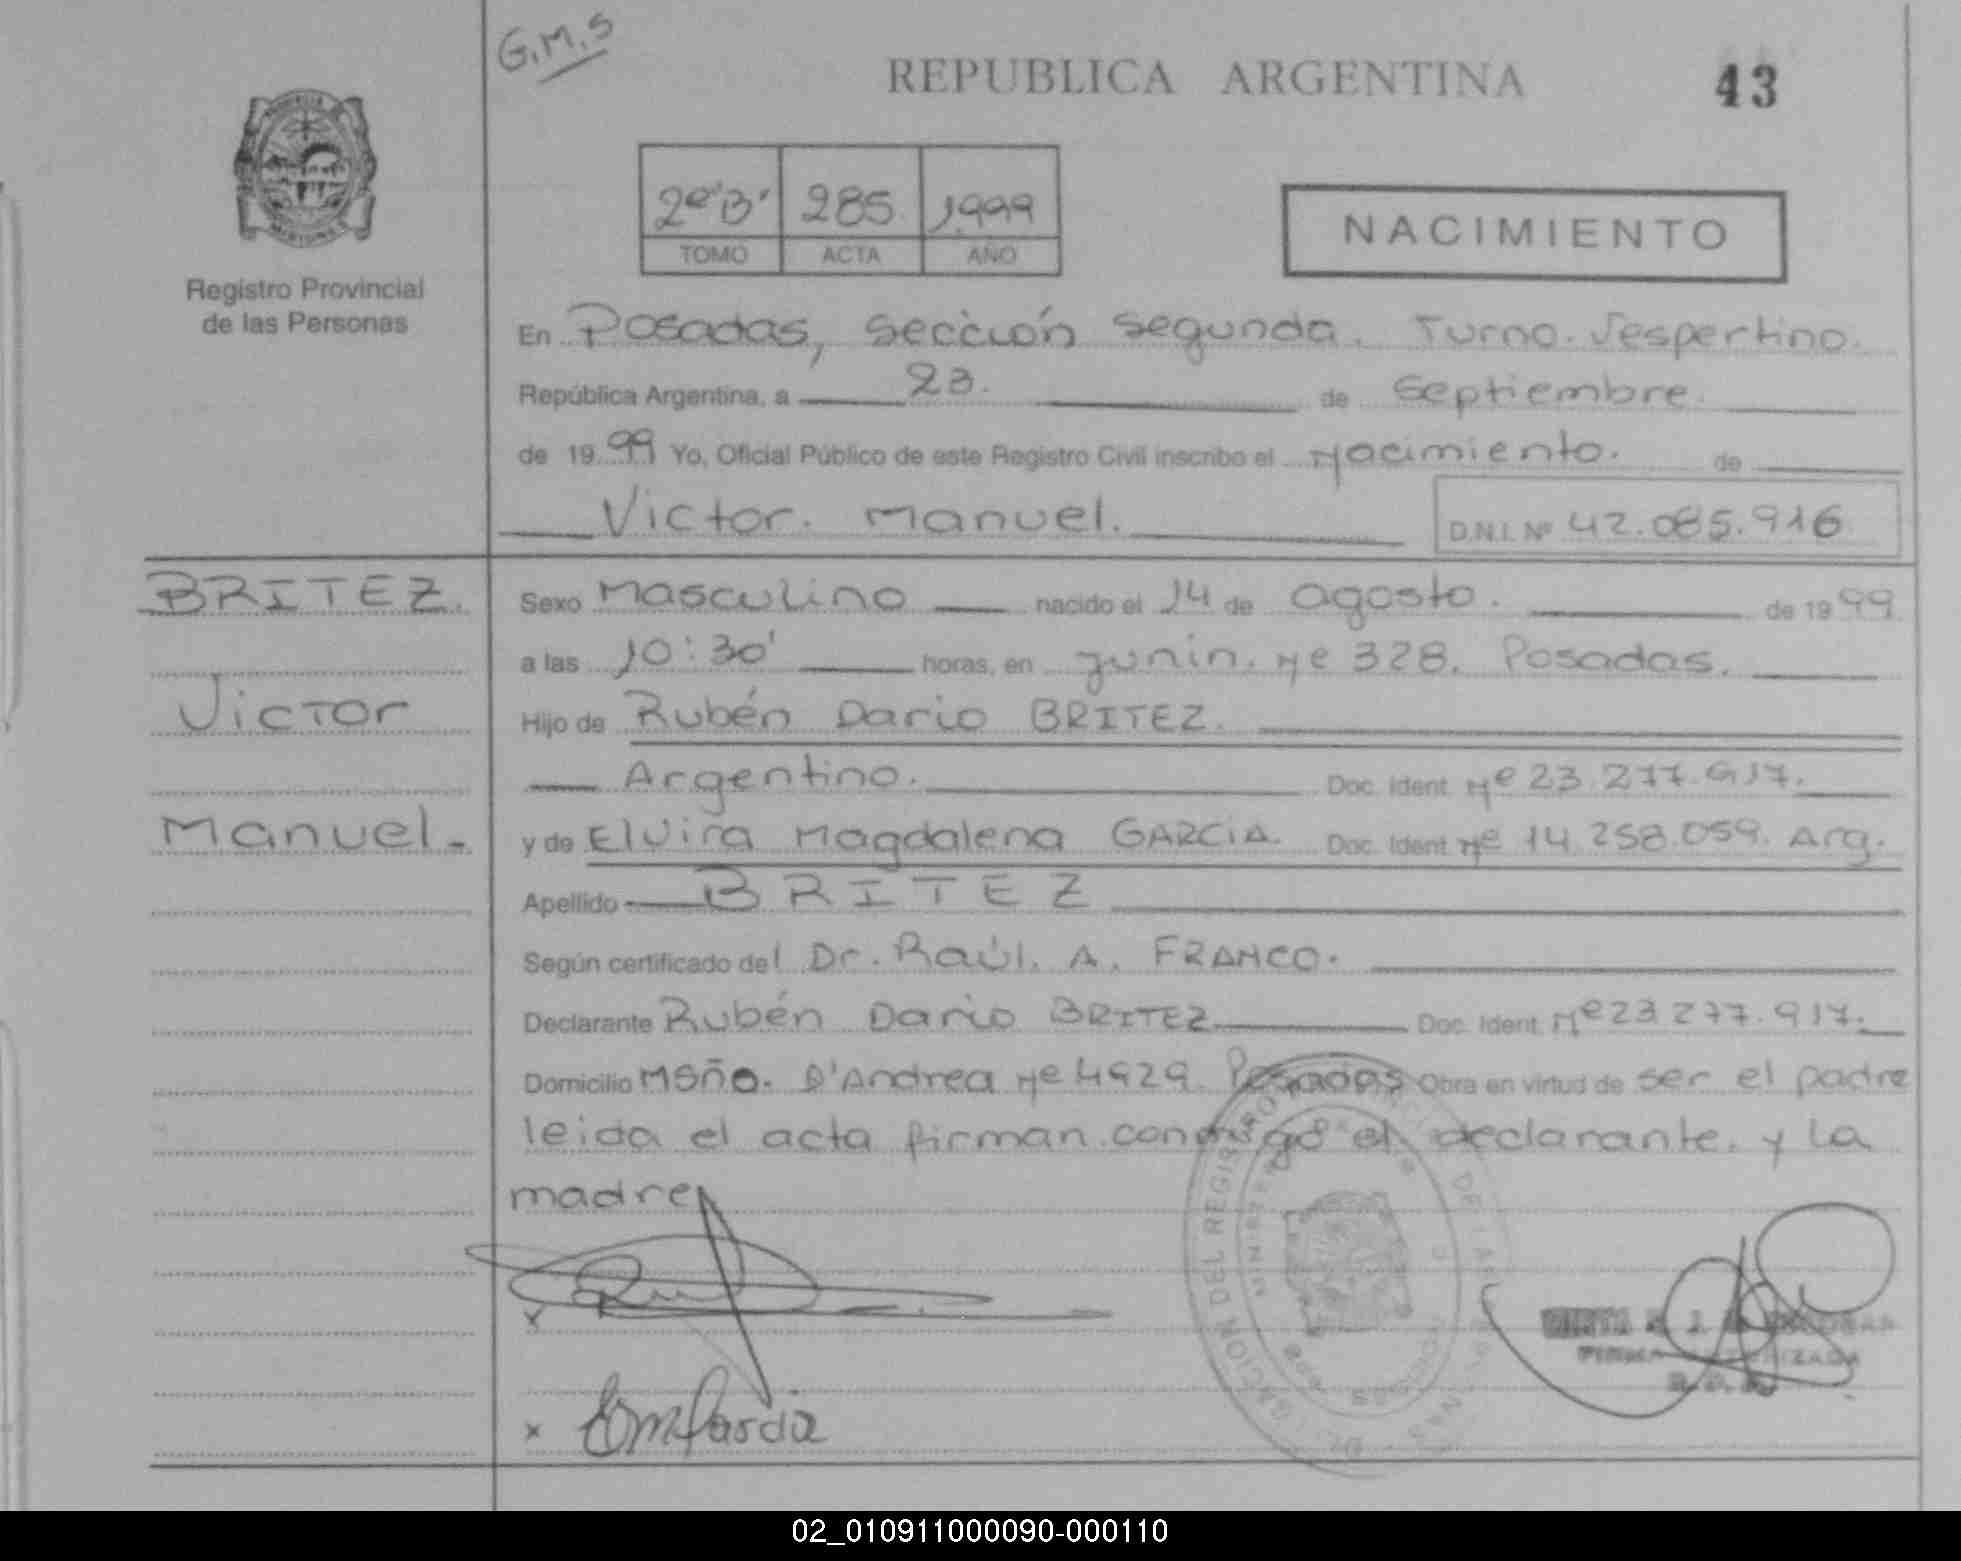 G.M.S
REPUBLICA ARGENTINA
43
2º"B" 285 1.999
TOMO ACTA AÑO
NACIMIENTO
Registro Provincial
de las Personas
En Posadas, sección segunda. Turno. Vespertino.
República Argentina, a 23. de Septiembre.
de 1999 Yo, Oficial Público de este Registro Civil inscribo el Nacimiento. de
Victor. Manuel. D.N.I. Nº 42.085.916
BRITEZ.
Victor
Manuel.-
Sexo Masculino nacido el 14 de agosto. de 1999
a las 10:30' horas, en Junin. Nº 328. Posadas.
Hijo de Rubén Dario BRITEZ.
Argentino. Doc. Ident. Nº 23.277.917.
y de Elvira Magdalena GARCIA. Doc. Ident Nº 14.258.059. Arg.
Apellido BRITEZ
Según certificado del Dr. Raúl. A. FRANCO.
Declarante Rubén Dario BRITEZ. Doc. Ident. Nº 23.277.917.
Domicilio MSño. D'Andrea Nº 4929. Posadas Obra en virtud de ser el padre
leida el acta firman conmigo el declarante. y la
madre
x
x EmGarcia
02_010911000090-000110